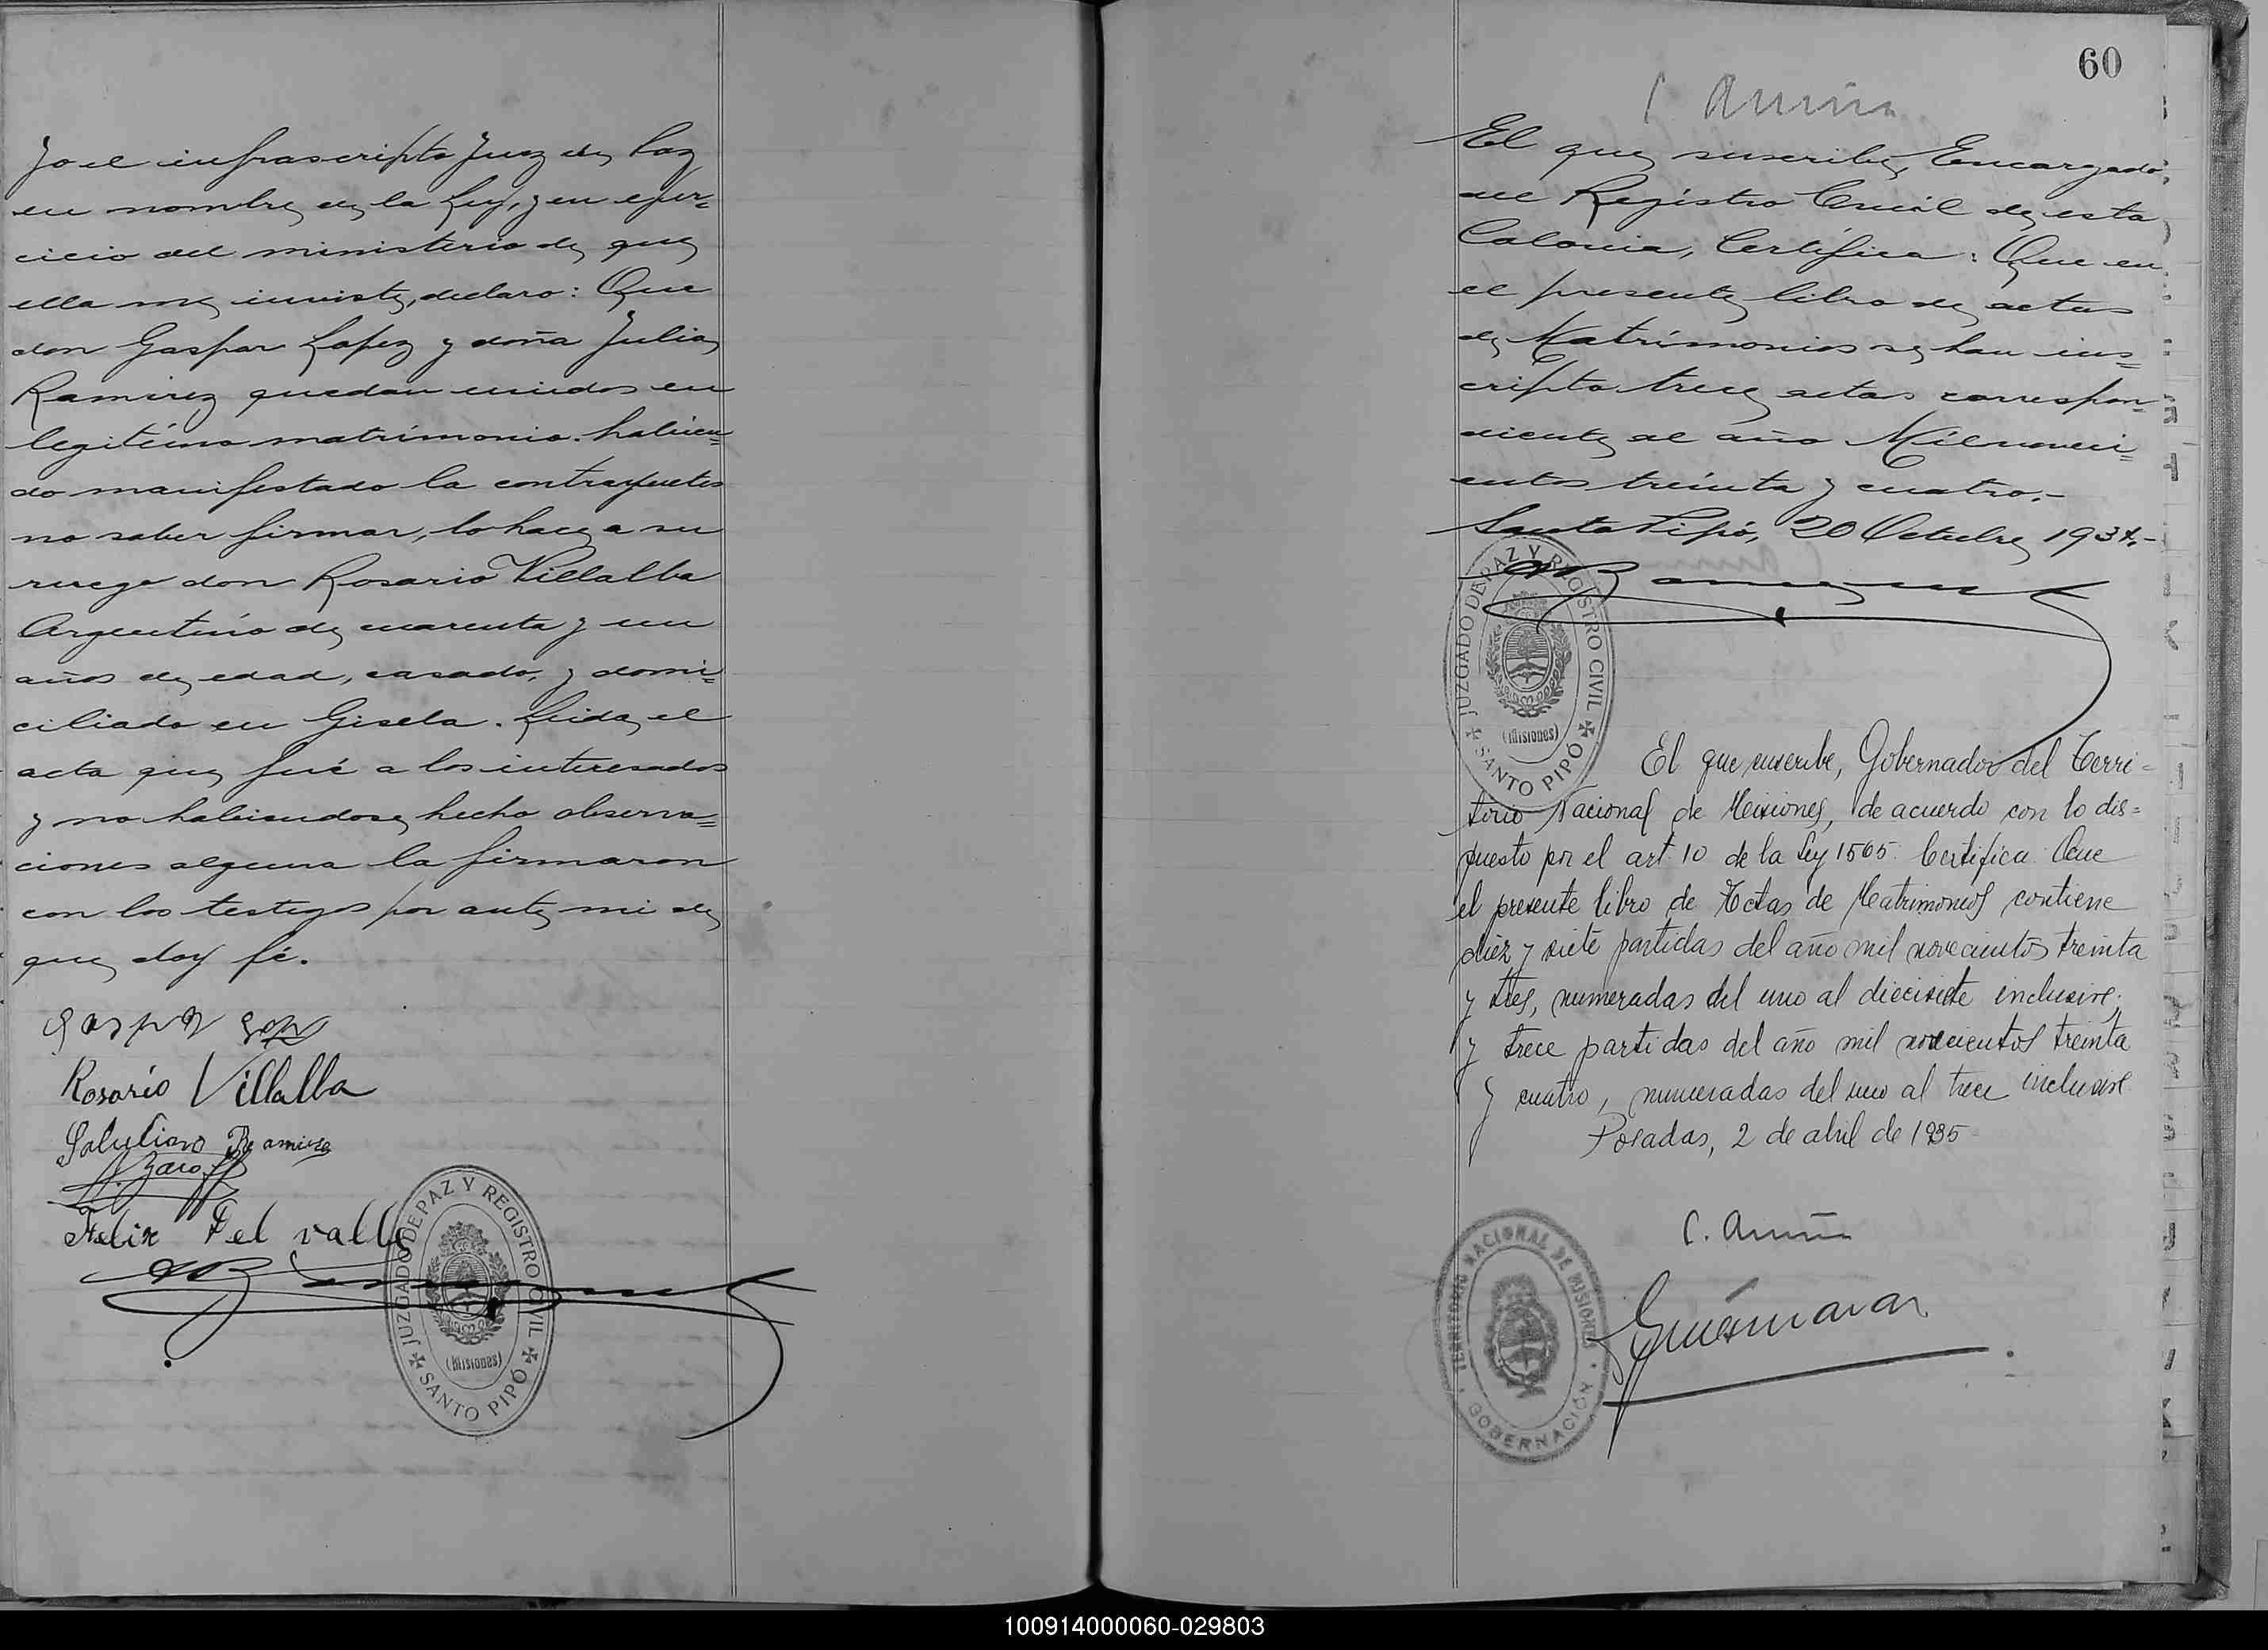 Yo el infrascripto Juez de Paz
en nombre de la Ley, y en ejer=
cicio del ministerio de que
ella me inviste, declaro: Que
don Gaspar Lopez y doña Julia
Ramirez quedan unidos en
legitimo matrimonio. habien=
do manifestado la contrayentes
no saber firmar, lo hace a su
ruego don Rosario Villalba
Argentino de cuarenta y un
años de edad, casado, y domi=
ciliado en Gisela. Leida el
acta que fué a los interesados
y no habiendose hecho observa=
ciones alguna la firmaron
con los testigos por ante mi de
que doy fé.
Gaspar
Rosario Villalba
Felix Del valle
JUZGADO DE PAZ Y REGISTRO CIVIL
(Misiones)
SANTO PIPÓ
60
El que suscribe, Encargado
del Registro Civil de esta
Colonia, Certifica: Que en
el presente libro de actas
de Matrimonios se han ins=
cripto trece actas correspon=
diente al año Mil novecien=
entos treinta y cuatro.-
Santo Pipó, 20 Octubre 1934.-
JUZGADO DE PAZ Y REGISTRO CIVIL
(Misiones)
SANTO PIPÓ
El que suscribe, Gobernador del Terri=
torio Nacional de Misiones, de acuerdo con lo dis=
puesto por el art. 10 de la Ley 1565. Certifica Que
el presente libro de Actas de Matrimonios contiene
diez y siete partidas del año mil novecientos treinta
y tres, numeradas del uno al diecisiete inclusive;
y trece partidas del año mil novecientos treinta
y cuatro, numeradas del uno al trece inclusive
Posadas, 2 de abril de 1935
TERRITORIO NACIONAL DE MISIONES
GOBERNACIÓN
100914000060-029803